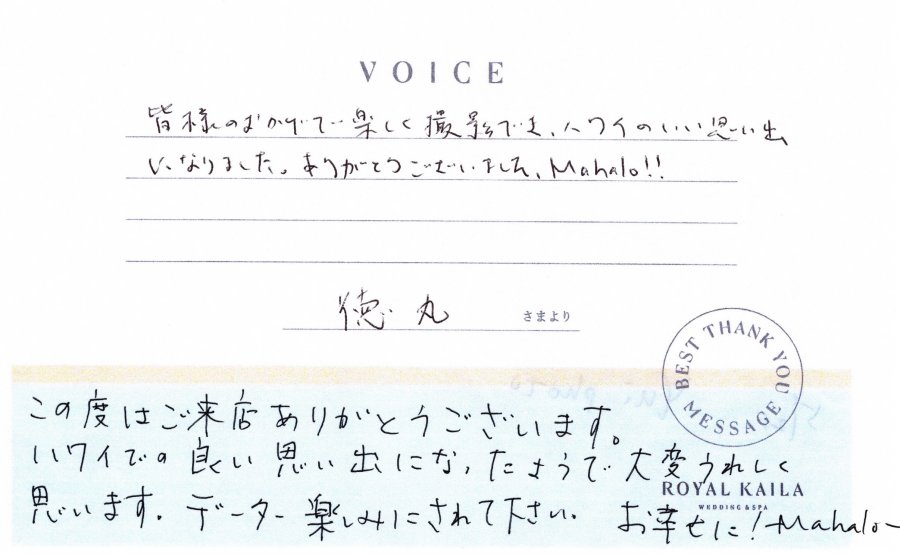 VOICE
皆様のおかげで楽しく撮影でき、ハワイのいい思い出
になりました。ありがとうございました、Mahalo!!
徳丸 さまより
BEST THANK YOU MESSAGE
この度はご来店ありがとうございます。
ハワイでの良い思い出になったようで大変うれしく
思います。データー楽しみにされて下さい。 お幸せに!Mahalo~
ROYAL KAILA
WEDDING & SPA